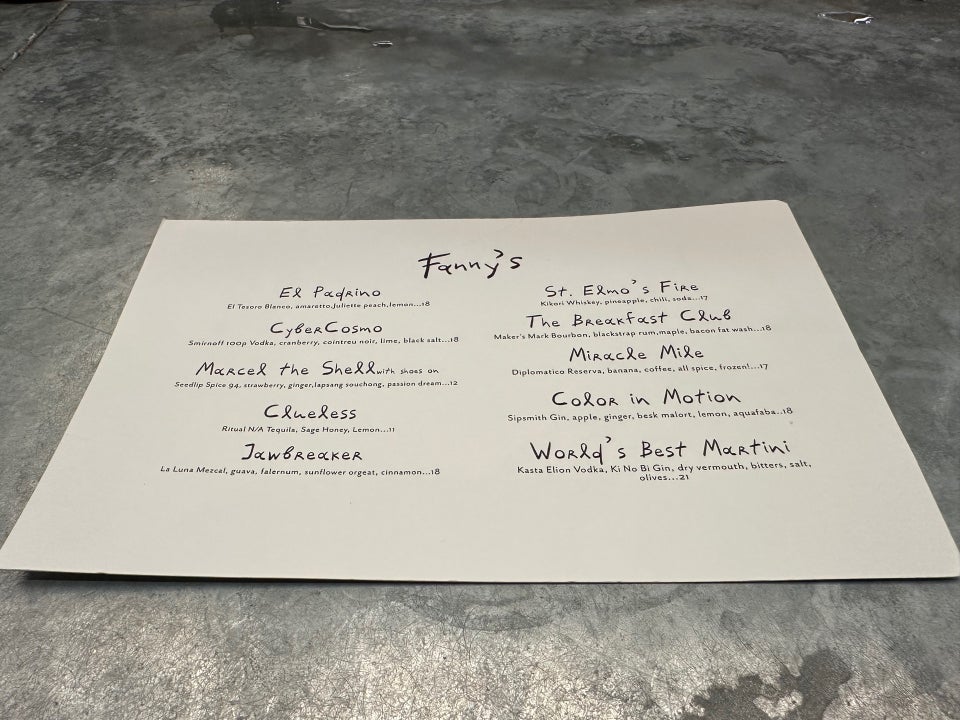 Fanny's
El Padrino
El Tesoro Blanco, amaretto,Juliette peach,lemon...18
CyberCosmo
Smirnoff 100p Vodka, cranberry, cointreu noir, lime, black salt...18
Marcel the Shell with shoes on
Seedlip Spice 94, strawberry, ginger,lapsang souchong, passion dream...12
Clueless
Ritual N/A Tequila, Sage Honey, Lemon...11
Jawbreaker
La Luna Mezcal, guava, falernum, sunflower orgeat, cinnamon...18
St. Elmo's Fire
Kikori Whiskey, pineapple, chili, soda...17
The Breakfast Club
Maker's Mark Bourbon, blackstrap rum,maple, bacon fat wash...18
Miracle Mile
Diplomatico Reserva, banana, coffee, all spice, frozen!...17
Color in Motion
Sipsmith Gin, apple, ginger, besk malort, lemon, aquafaba..18
World's Best Martini
Kasta Elion Vodka, Ki No Bi Gin, dry vermouth, bitters, salt,
olives...21